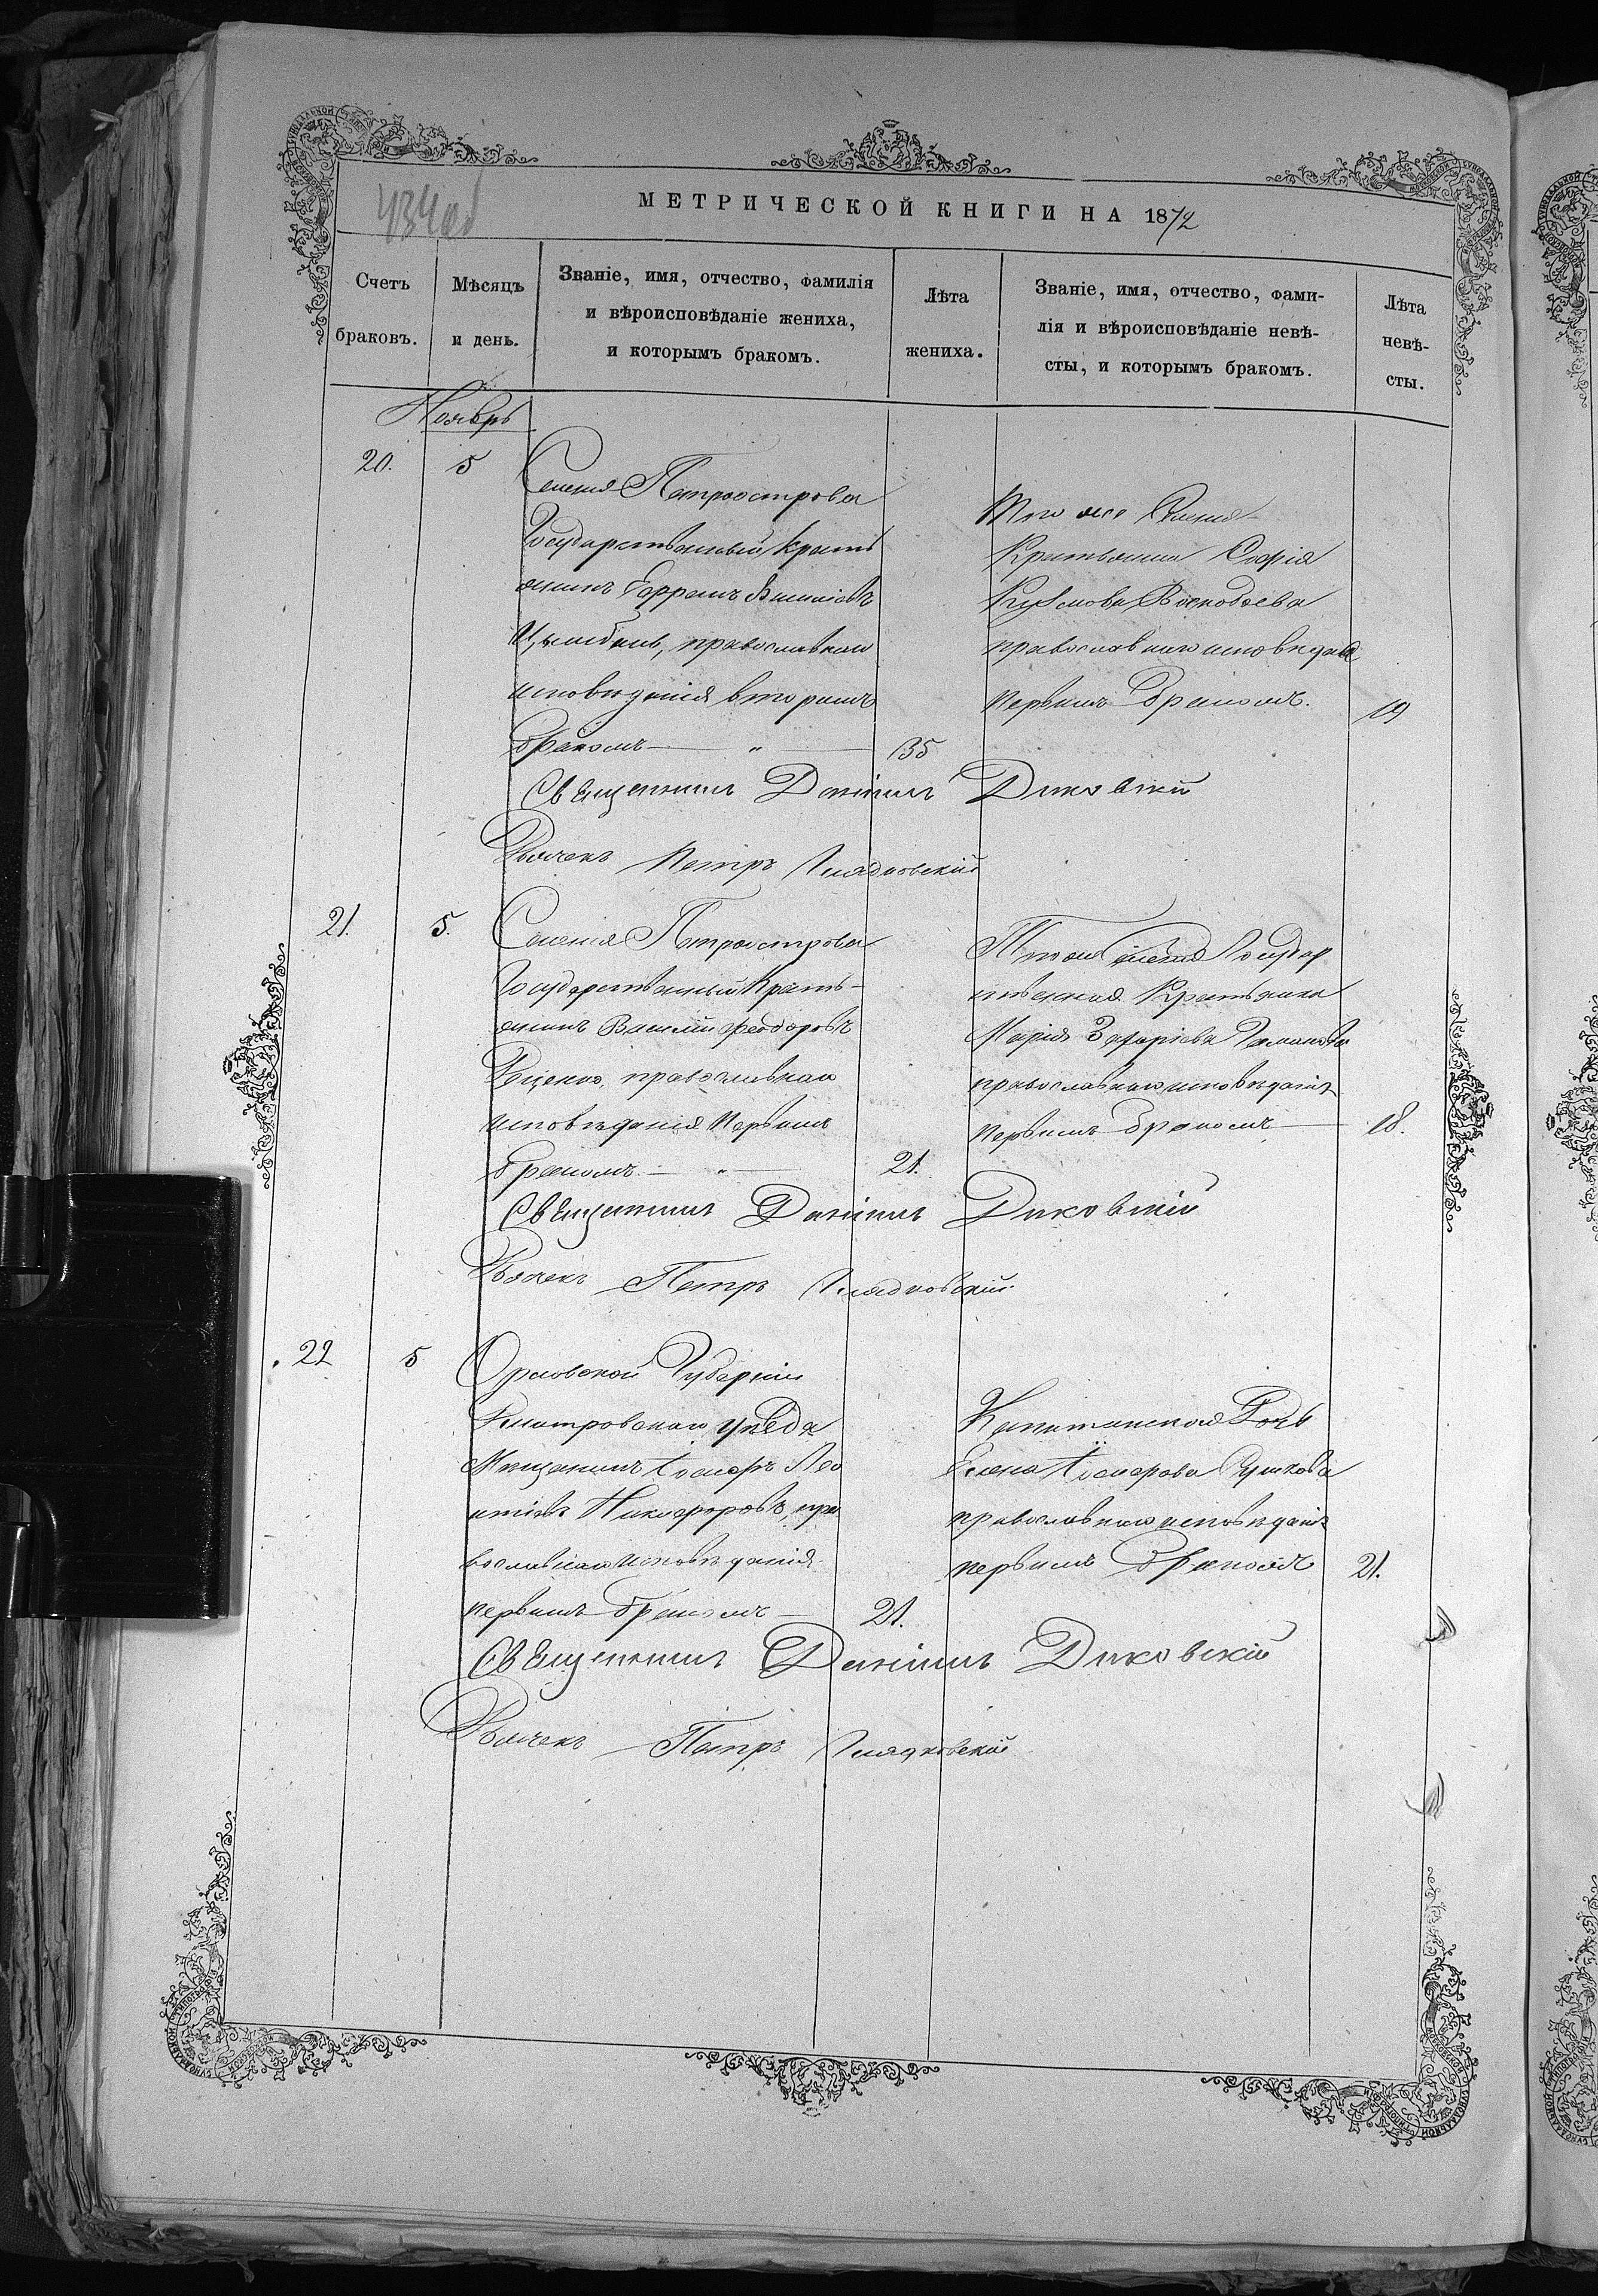 434об
МЕТРИЧЕСКОЙ КНИГИ НА 1872
Счетъ браковъ.
Мѣсяцъ и день.
Званіе, имя, отчество, фамилія
и вѣроисповѣданіе жениха,
и которымъ бракомъ.
Лѣта жениха.
Званіе, имя, отчество, фами-
лія и вѣроисповѣданіе невѣ-
сты, и которымъ бракомъ.
Лѣта невѣ-
сты.
Ноябрь
20. 5
Селенія Петроострова
Государственный Кресть
янинъ Ефремъ Васильевъ
православнаго
исповѣданія вторымъ
бракомъ — " — 35
Того же Селенія
Крестьянка Софія
Кузмова Воскобоева
православнаго исповѣданія
первымъ бракомъ. 19
Священникъ Даніилъ Диковскій
Дьячекъ Петръ Гладковскій
21. 5.
Селенія Петроострова
Государственный Кресть-
янинъ Василій Феодоровъ
православнаго
исповѣданія первымъ
бракомъ — " — 21.
Того же Селенія Государ
ственная Крестьянка
Марія Захаріева
православнаго исповѣданія
первымъ бракомъ — 18.
Священникъ Даніилъ Диковскій
Дьячекъ Петръ Гладковскій
22 5
Орловской Губерніи
Дмитровскаго уѣзда
Мѣщанинъ Іосифъ Лео
нтіевъ Никифоровъ, пра
вославнаго исповѣданія
первымъ бракомъ — 21.
Капитанская Дочь
Елена Іосифова
православнаго исповѣданія
первымъ бракомъ 21.
Священникъ Даніилъ Диковскій
Дьячекъ Петръ Гладковскій